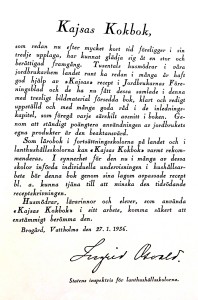 Kajsas Kokbok,
som redan nu efter mycket kort tid föreligger i sin
tredje upplaga, har kunnat glädja sig åt en stor och
berättigad framgång. Tusentals husmödrar i våra
jordbrukarhem landet runt ha redan i många år haft
god hjälp av »Kajsas» recept i Jordbrukarnas Före-
ningsblad och de ha nu fått dessa samlade i denna
med trevligt bildmaterial försedda bok, klart och redigt
uppställd och med många goda råd i de inledning-
kapitel, som föregå varje särskilt avsnitt i boken. Ge-
nom att ständigt poängtera användningen av jordbrukets
egna produkter är den beaktansvärd.
Som lärobok i fortsättningsskolorna på landet och i
lanthushållsskolorna kan »Kajsas Kokbok» varmt rekom-
menderas. I synnerhet för den nu i många av dessa
skolor införda individuella undervisningen i hushållsar-
bete bör denna bok genom sina lagom anpassade recept
bl. a. kunna tjäna till att minska den tidsödande
receptskrivningen.
Husmödrar, lärarinnor och elever, som använda
»Kajsas Kokbok» i sitt arbete, komma säkert att
enstämmigt berömma den.
Brogård, Vattholma den 27.1.1936.
Statens inspektris för lanthushållsskolorna.